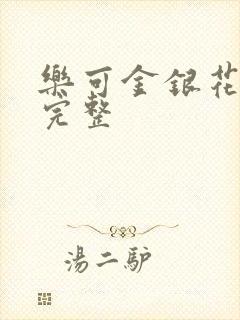 樂可金銀花
完整
湯二驴